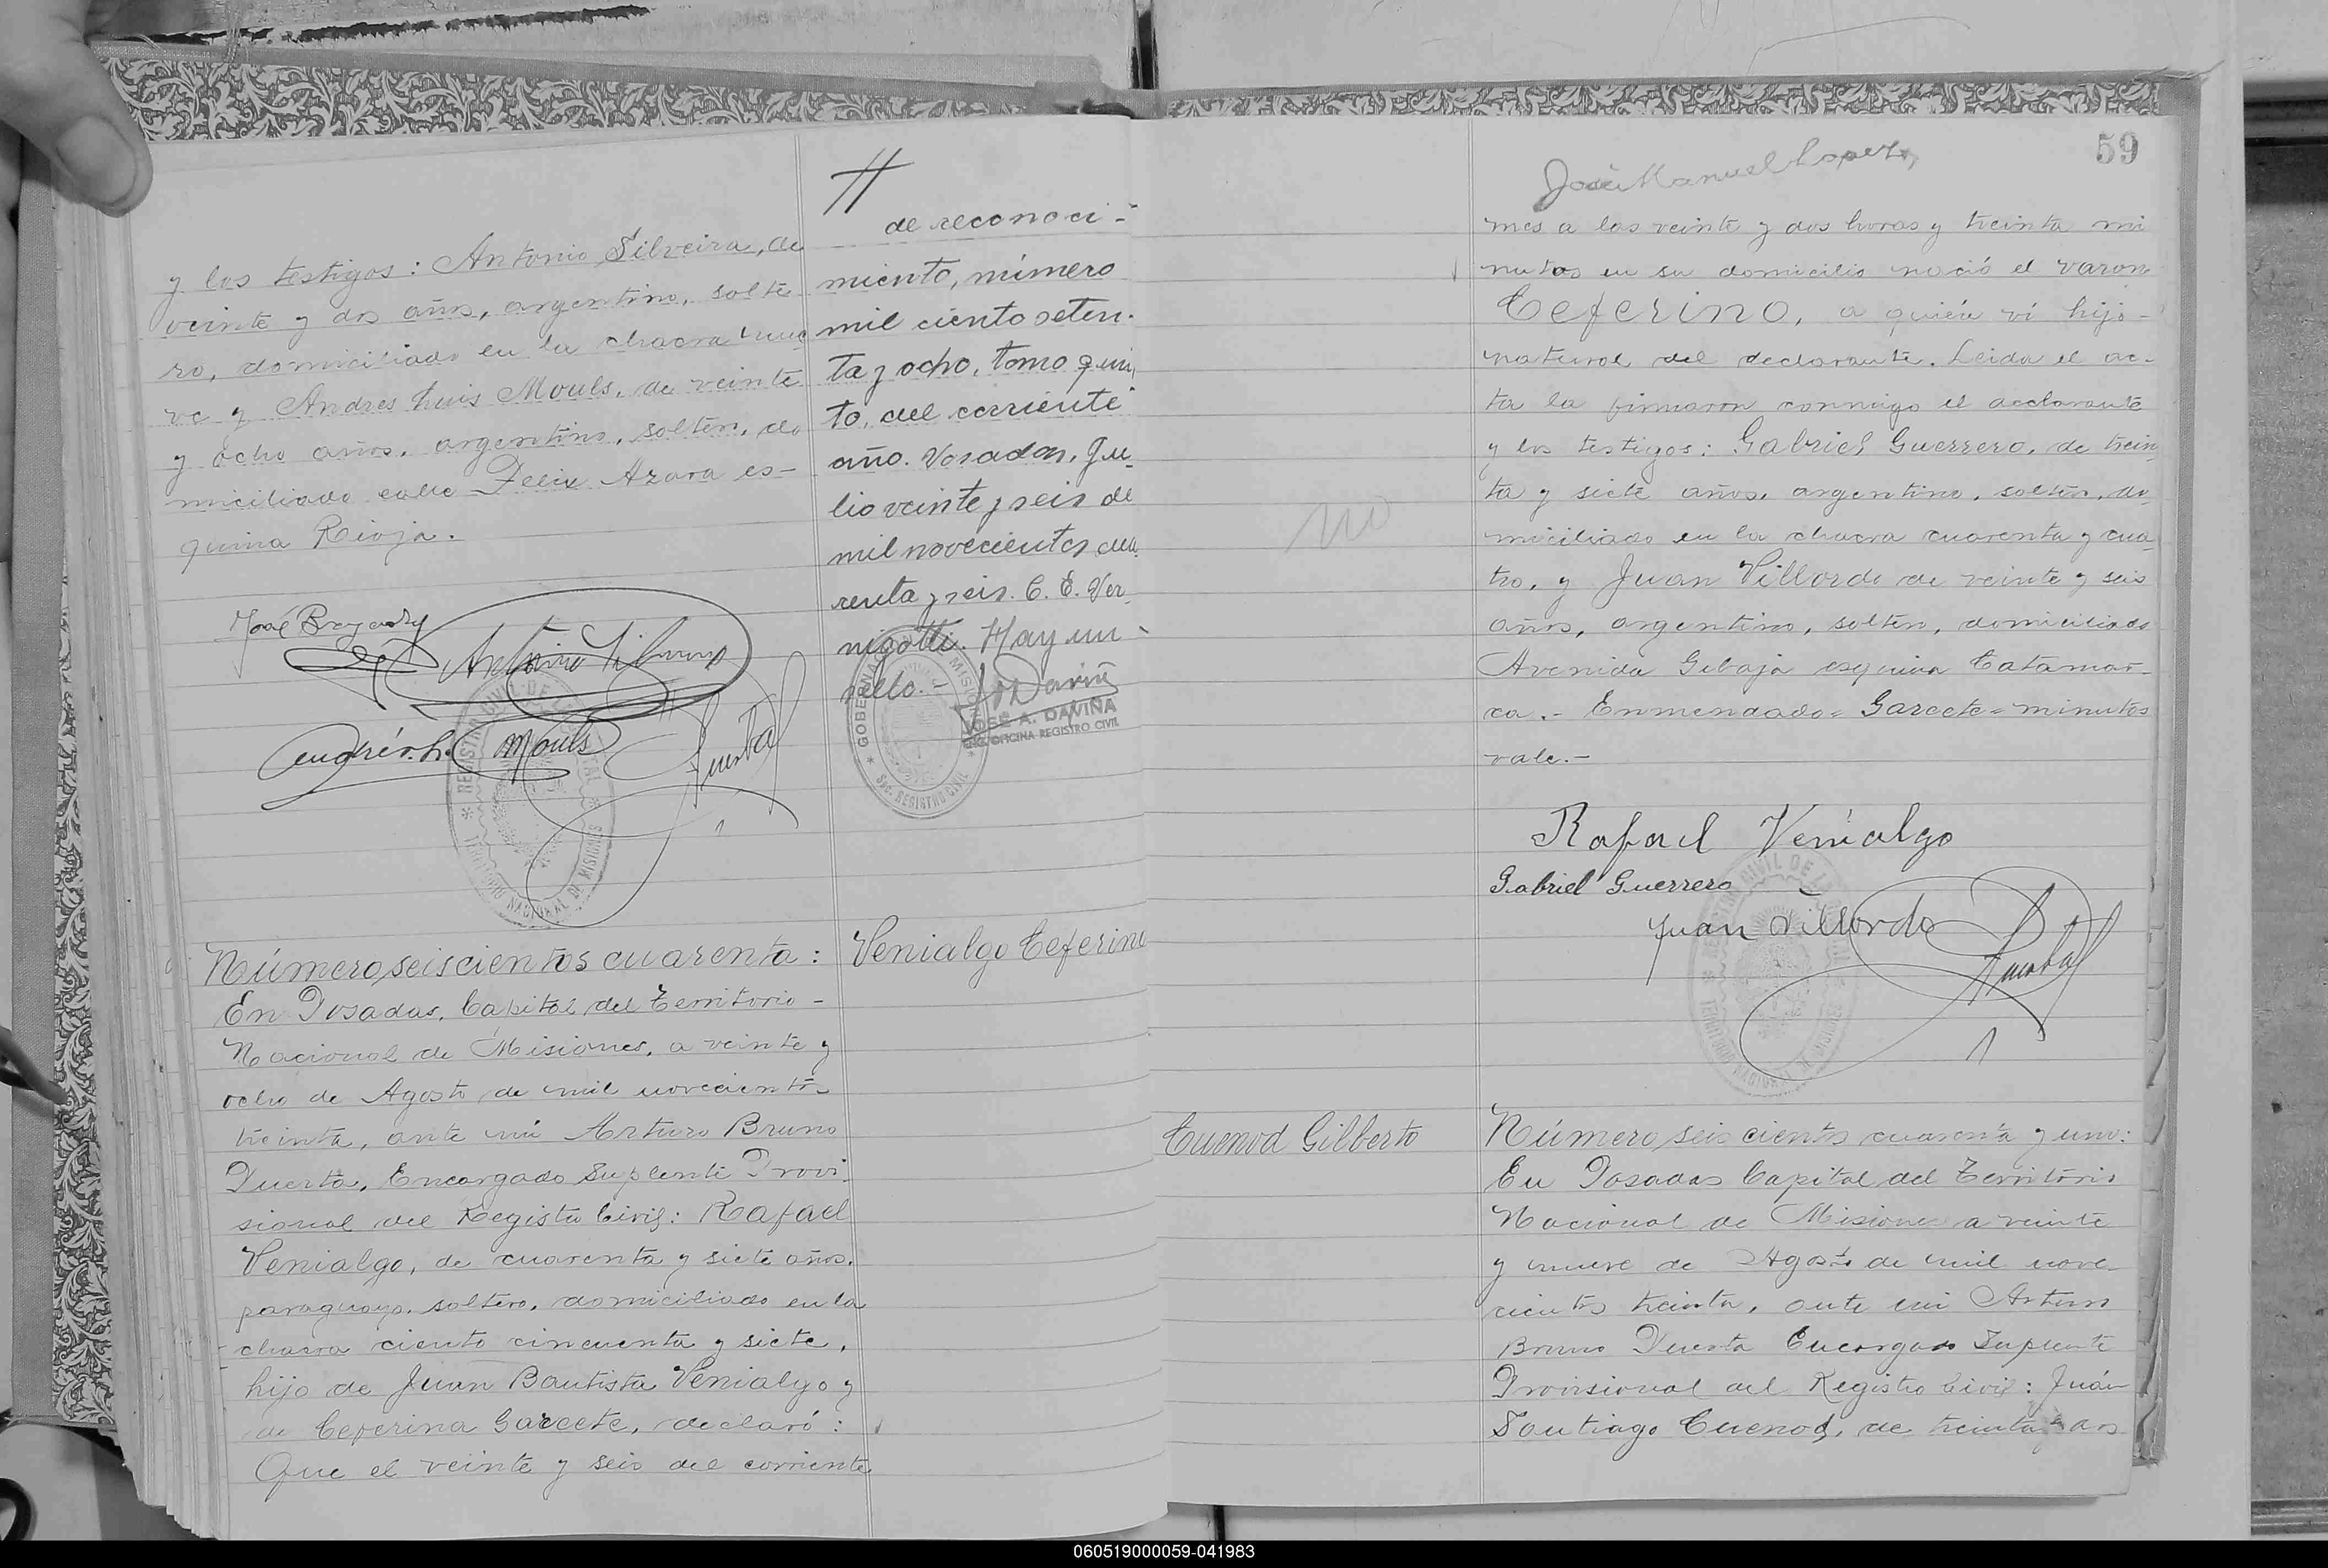 y los testigos: Antonio Silveira, de
veinte y dos años, argentino, solte
ro, domiciliado en la chacra nue
ve y Andres Luis Mouls, de veinte
y ocho años, argentino, soltero, do
miciliado calle Felix Azara es-
quina Rioja.
José
Antonio Silveira
Andrés L. Mouls
REGISTRO CIVIL DE LA CAPITAL
TERRITORIO NACIONAL DE MISIONES
Número seiscientos cuarenta:
En Posadas, Capital del Territorio-
Nacional de Misiones, a veinte y
ocho de Agosto de mil novecientos
treinta, ante mi Arturo Bruno
Puerta, Encargado Suplente Provi-
sional del Registro Civil: Rafael
Venialgo, de cuarenta y siete años,
paraguayo, soltero, domiciliado en la
chacra ciento cincuenta y siete,
hijo de Juan Bautista Venialgo y
de Ceferina Garcete, declaró:
Que el veinte y seis del corriente
de reconoci-
miento, número
mil ciento seten-
ta y ocho, tomo quin
to, del corriente
año. Posadas, Ju-
lio veinte y seis de
mil novecientos cua
renta y seis. C. E. Ver
nigotti. Hay un
sello.-
JOSÉ A. DAVIÑA
ENC. OFICINA REGISTRO CIVIL
Venialgo Ceferino
59
José Manuel Lopez
mes a las veinte y dos horas y treinta mi
nutos en su domicilio nació el varon
Ceferino, a quién ví hijo-
natural del declarante. Leida el ac-
ta la firmaron conmigo el declarante
y los testigos: Gabriel Guerrero, de trein
ta y siete años, argentino, soltero, do
miciliado en la chacra cuarenta y cua
tro, y Juan Villordo de veinte y seis
años, argentino, soltero, domiciliado
Avenida Gibaja esquina Catamar-
ca.- Enmendado= Garcete= minutos
vale.-
no
Rafael Venialgo
Gabriel Guerrero
Juan Villordo
Puerta
REGISTRO CIVIL DE LA
TERRITORIO NACIONAL DE MISIONES
Cuenod Gilberto
Número seis cientos cuarenta y uno:
En Posadas Capital del Territorio
Nacional de Misiones a veinte
y nueve de Agosto de mil nove-
cientos treinta, ante mi Arturo
Bruno Puerta Encargado Suplente
Provisional del Registro Civil: Juán
Santiago Cuenod, de treinta y dos
060519000059-041983